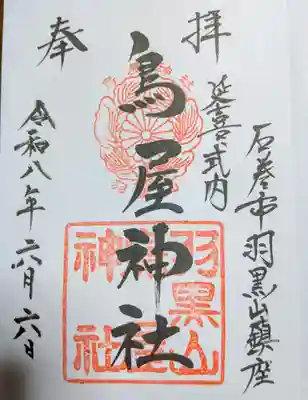 奉拝
石巻市羽黒山鎮座
延喜式内
鳥屋神社
羽黒山
神社
令和八年六月六日